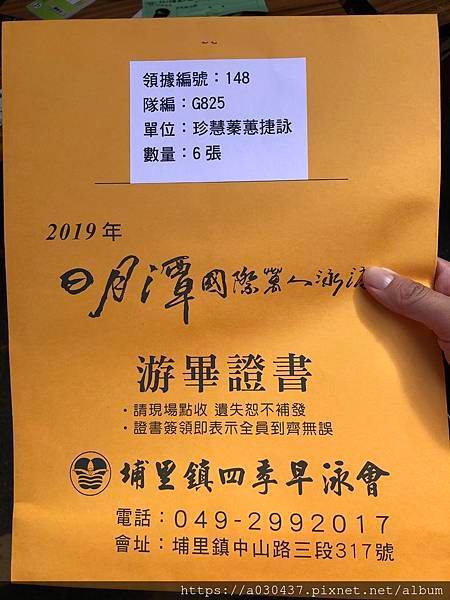 領據編號：148
隊編：G825
單位：珍慧蓁蕙捷詠
數量：6張
2019年
日月潭國際萬人泳渡
游畢證書
・請現場點收 遺失恕不補發
・證書簽領即表示全員到齊無誤
埔里鎮四季早泳會
電話：049-2992017
會址：埔里鎮中山路三段317號
https://a030437.pixnet.net/album